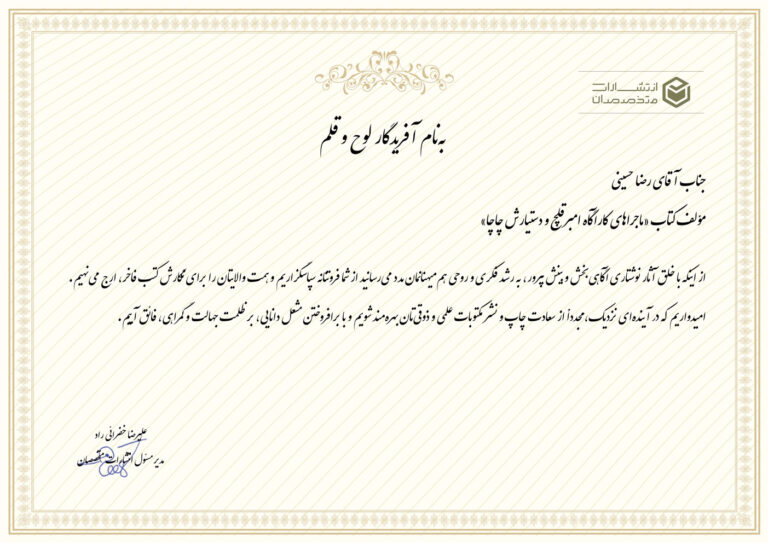 انتشارات
متخصصان
به‌نام آفریدگار لوح و قلم
جناب آقای رضا حسینی
مؤلف کتاب «ماجراهای کارآگاه امبرقلچ و دستیارش چاچا»
از اینکه با خلق آثار نوشتاری آگاهی‌بخش و بینش پرور، به رشد فکری و روحی هم میهنانمان مدد می‌رسانید از شما فروتنانه سپاسگزاریم و همت والایتان را برای نگارش کتب فاخر، ارج می‌نهیم.
امیدواریم که در آینده‌ای نزدیک، مجدداً از سعادت چاپ و نشر مکتوبات علمی و ذوقی‌تان بهره‌مند شویم و با برافروختن مشعل دانایی، بر ظلمت جهالت و گمراهی، فائق آییم.
علیرضا خفرائی راد
مدیر مسئول انتشارات متخصصان